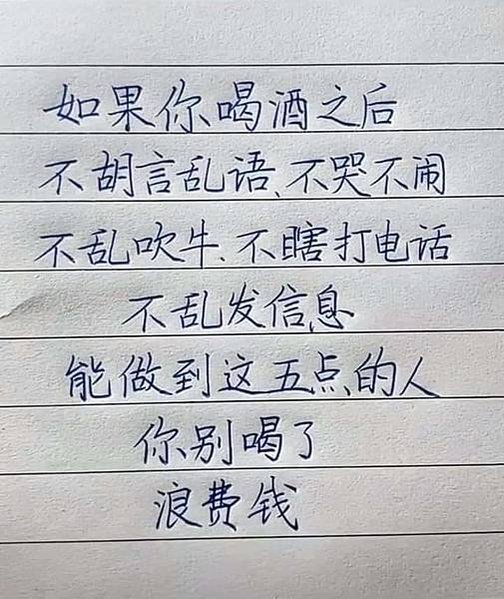 如果你喝酒之后
不胡言乱语、不哭不闹
不乱吹牛、不瞎打电话
不乱发信息
能做到这五点的人
你别喝了
浪费钱